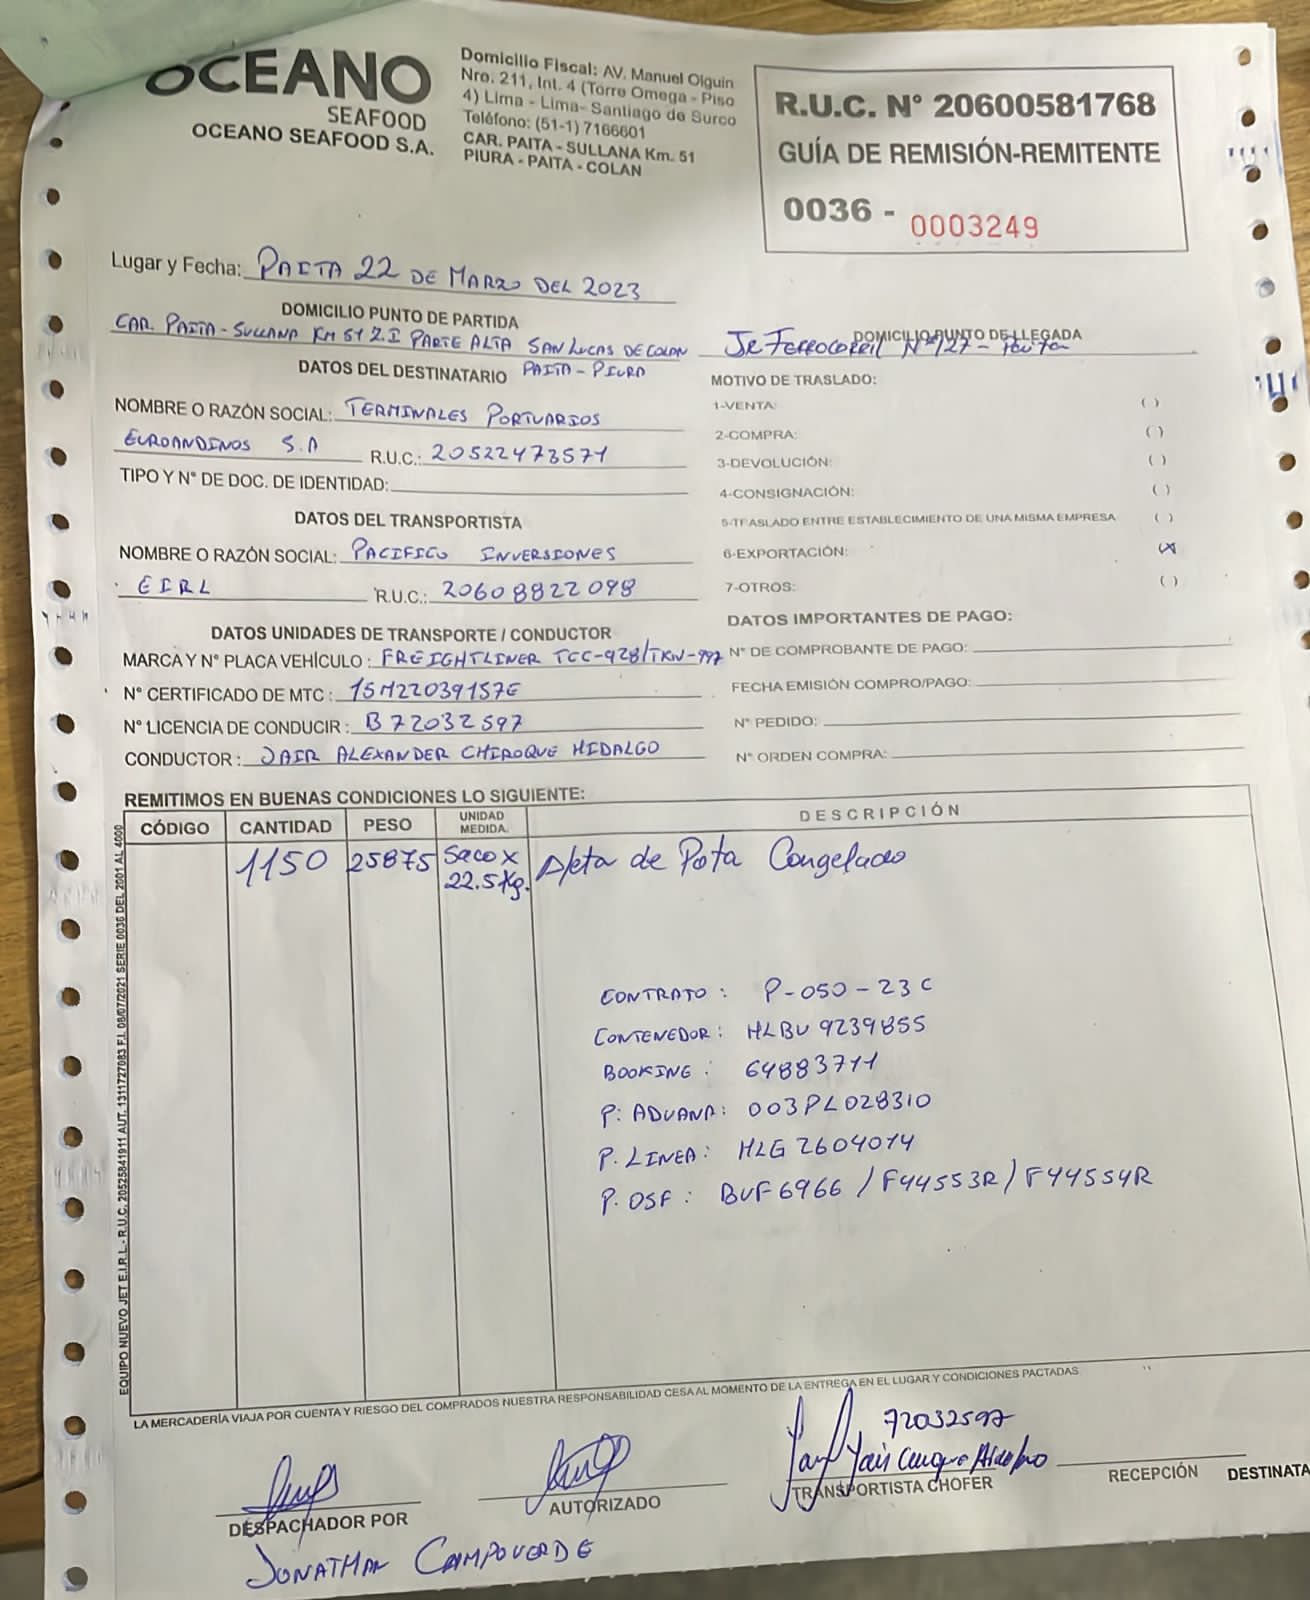 OCEANO
SEAFOOD
OCEANO SEAFOOD S.A.
Domicilio Fiscal: AV. Manuel Olguin
Nro. 211, Int. 4 (Torre Omega - Piso
4) Lima - Lima- Santiago de Surco
Teléfono: (51-1) 7166601
CAR. PAITA - SULLANA Km. 51
PIURA - PAITA - COLAN
R.U.C. N° 20600581768
GUÍA DE REMISIÓN-REMITENTE
0036 - 0003249
Lugar y Fecha: PAITA 22 DE MARZO DEL 2023
DOMICILIO PUNTO DE PARTIDA
CAR. PAITA-SULLANA KM 51 Z.I PARTE ALTA SAN LUCAS DE COLAN
PAITA-PIURA
DOMICILIO PUNTO DE LLEGADA
Jr Ferrocarril N°127 - Paita
DATOS DEL DESTINATARIO
NOMBRE O RAZÓN SOCIAL: TERMINALES PORTUARIOS
EUROANDINOS S.A R.U.C.: 20522473571
TIPO Y N° DE DOC. DE IDENTIDAD:
DATOS DEL TRANSPORTISTA
NOMBRE O RAZÓN SOCIAL: PACIFICO INVERSIONES
EIRL R.U.C.: 20608822098
DATOS UNIDADES DE TRANSPORTE / CONDUCTOR
MARCA Y N° PLACA VEHÍCULO: FREIGHTLINER TCC-928/TKW-997
N° CERTIFICADO DE MTC: 15M22039157E
N° LICENCIA DE CONDUCIR: B72032597
CONDUCTOR: JAIR ALEXANDER CHIROQUE HIDALGO
MOTIVO DE TRASLADO:
1-VENTA: ( )
2-COMPRA: ( )
3-DEVOLUCIÓN: ( )
4-CONSIGNACIÓN: ( )
5-TRASLADO ENTRE ESTABLECIMIENTO DE UNA MISMA EMPRESA ( )
6-EXPORTACIÓN: (X)
7-OTROS: ( )
DATOS IMPORTANTES DE PAGO:
N° DE COMPROBANTE DE PAGO:
FECHA EMISIÓN COMPRO/PAGO:
N° PEDIDO:
N° ORDEN COMPRA:
REMITIMOS EN BUENAS CONDICIONES LO SIGUIENTE:
CÓDIGO CANTIDAD PESO UNIDAD MEDIDA. DESCRIPCIÓN
1150 25875 Saco x 22.5 Kg. Aleta de Pota Congelado
CONTRATO: P-050-23C
CONTENEDOR: HLBU 9239855
BOOKING: 64883711
P: ADUANA: 003PL028310
P. LINEA: HLG 2604014
P. OSF: BUF6966 / F44553R / F44554R
EQUIPO NUEVO JET E.I.R.L.- R.U.C. 20525841911 AUT. 1311727083 F.I. 08/07/2021 SERIE 0036 DEL 2001 AL 4000
LA MERCADERÍA VIAJA POR CUENTA Y RIESGO DEL COMPRADOS NUESTRA RESPONSABILIDAD CESA AL MOMENTO DE LA ENTREGA EN EL LUGAR Y CONDICIONES PACTADAS
72032597
DESPACHADOR POR
AUTORIZADO
TRANSPORTISTA CHOFER
RECEPCIÓN
DESTINATA
JONATHAN CAMPOVERDE